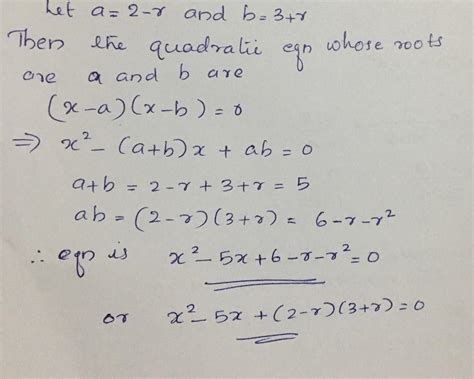 Let a = 2-r and b = 3+r
Then the quadratic eqn whose roots
are a and b are
(x-a)(x-b) = 0
⇒ x² - (a+b)x + ab = 0
a+b = 2-r + 3+r = 5
ab = (2-r)(3+r) = 6-r-r²
∴ eqn is x² - 5x + 6 - r - r² = 0
or x² - 5x + (2-r)(3+r) = 0